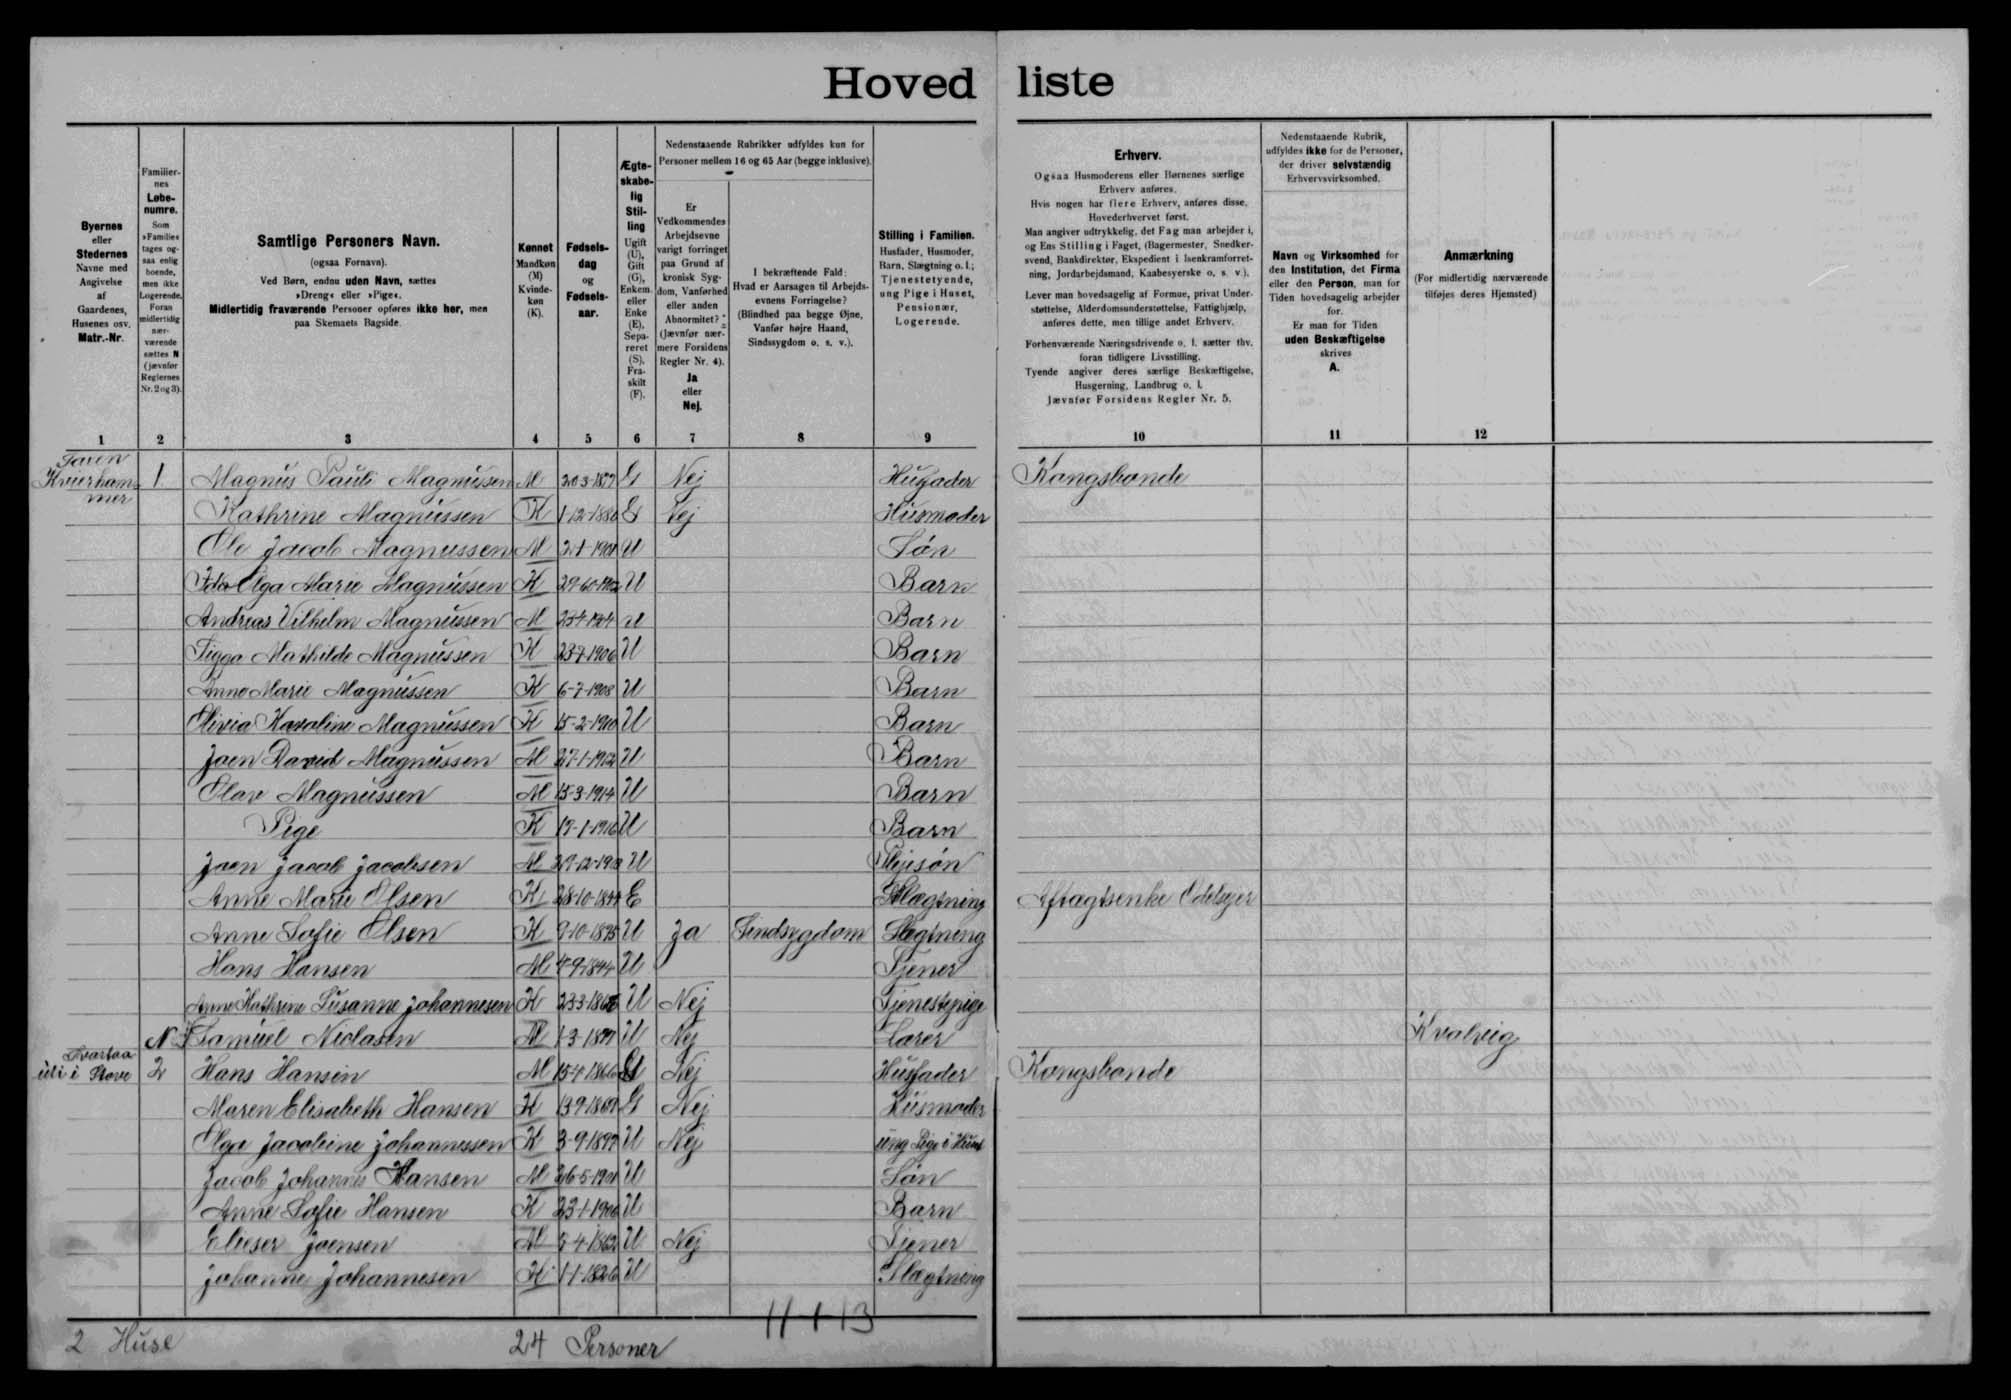 Hoved liste
Byernes
eller
Stedernes
Navne med
Angivelse
af
Gaardenes,
Husenes osv.
Matr.-Nr.
Familier-
nes
Løbe-
numre.
Som
»Familie«
tages og-
saa enlig
boende,
men ikke
Logerende.
Foran
midlertidig
nær-
værende
sættes N
(jævnfør
Reglernes
Nr. 2 og 3).
Samtlige Personers Navn.
(ogsaa Fornavn).
Ved Børn, endnu uden Navn, sættes
»Dreng« eller »Pige«.
Midlertidig fraværende Personer opføres ikke her, men
paa Skemaets Bagside.
Kønnet
Mandkøn
(M)
Kvinde-
køn
(K).
Fødsels-
dag
og
Fødsels-
aar.
Ægte-
skabe-
lig
Stil-
ling
Ugift
(U),
Gift
(G),
Enkem.
eller
Enke
(E),
Sepa-
reret
(S),
Fra-
skilt
(F).
Nedenstaaende Rubrikker udfyldes kun for
Personer mellem 16 og 65 Aar (begge inklusive).
Er
Vedkommendes
Arbejdsevne
varigt forringet
paa Grund af
kronisk Syg-
dom, Vanførhed
eller anden
Abnormitet?
(Jævnfør nær-
mere Forsidens
Regler Nr. 4).
Ja
eller
Nej.
I bekræftende Fald:
Hvad er Aarsagen til Arbejds-
evnens Forringelse?
(Blindhed paa begge Øjne,
Vanfør højre Haand,
Sindssygdom o. s. v.).
Stilling i Familien.
Husfader, Husmoder,
Barn, Slægtning o. l.;
Tjenestetyende,
ung Pige i Huset,
Pensionær,
Logerende.
Erhverv.
Ogsaa Husmoderens eller Børnenes særlige
Erhverv anføres.
Hvis nogen har flere Erhverv, anføres disse,
Hovederhvervet først.
Man angiver udtrykkelig, det Fag man arbejder i,
og Ens Stilling i Faget, (Bagermester, Snedker-
svend, Bankdirektør, Ekspedient i Isenkramforret-
ning, Jordarbejdsmand, Kaabesyerske o. s. v.).
Lever man hovedsagelig af Formue, privat Under-
støttelse, Alderdomsunderstøttelse, Fattighjælp,
anføres dette, men tillige andet Erhverv.
Forhenværende Næringsdrivende o. l. sætter thv.
foran tidligere Livsstilling.
Tyende angiver deres særlige Beskæftigelse,
Husgerning, Landbrug o. l.
Jævnfør Forsidens Regler Nr. 5.
Nedenstaaende Rubrik,
udfyldes ikke for de Personer,
der driver selvstændig
Erhvervsvirksomhed.
Navn og Virksomhed for
den Institution, det Firma
eller den Person, man for
Tiden hovedsagelig arbejder
for.
Er man for Tiden
uden Beskæftigelse
skrives
A.
Anmærkning
(For midlertidig nærværende
tilføjes deres Hjemsted)
1 2 3 4 5 6 7 8 9 10 11 12
Kvierham
mer
1 Magnus Pauli Magnussen M 20-3-1877 G Nej Husfader Kongsbonde
Kathrine Magnussen K 1-12-1880 G Nej Husmoder
Ole Jacob Magnussen M 1901 U Søn
Ida Olga Marie Magnussen K 29-10-1902 U Barn
Andreas Vilhelm Magnussen M 23-4-1904 U Barn
Sigga Mathilde Magnussen K 1906 U Barn
Anne Marie Magnussen K 6-7-1908 U Barn
Olivia Karoline Magnussen K 15-2-1910 U Barn
Joen David Magnussen M 27-1-1912 U Barn
Olav Magnussen M 15-3-1914 U Barn
Pige K 19-1-1916 U Barn
Joen Jacob Jacobsen M 29-12-1913 U Plejesøn
Anne Marie Olsen K 28-10-1844 E Slægtning Aftægtsenke Odelsejer
Anne Sofie Olsen K 9-10-1875 U Ja Sindsygdom Slægtning
Hans Hansen M 4-9-1844 U Tjener
Anne Kathrine Susanne Johannesen K 23-3-1868 U Nej Tjenestepige
N Samuel Niclasen M 1-3-1877 U Nej Lærer Kvalvig
Svartaa
uti i Stove 2 Hans Hansen M 15-4-1866 G Nej Husfader Kongsbonde
Maren Elisabeth Hansen K 13-9-1869 G Nej Husmoder
Olga Jacobine Johannessen K 3-9-1897 U Nej ung Pige i Huset
Jacob Johannes Hansen M 26-5-1901 U Søn
Anne Sofie Hansen K 23-1-1906 U Barn
Elieser Joensen M 5-4-1862 U Nej Tjener
Johanne Johannesen K 1-1-1826 U Slægtning
11+13
2 Huse 24 Personer